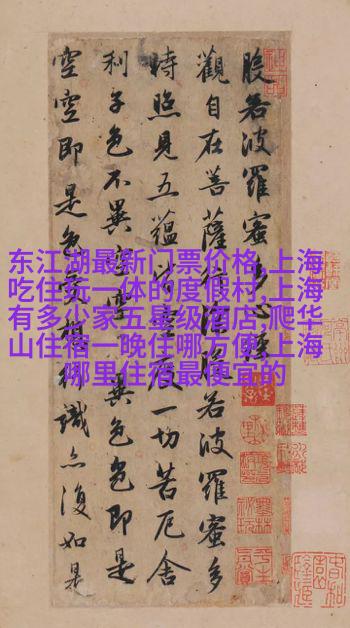 般若波羅蜜多心經
觀自在菩薩行深般若波羅蜜多
時照見五蘊皆空度一切苦厄舍
利子色不異空空不異色色即是
空空即是色受想行識亦復如是
东江湖最新门票价格,上海
吃住玩一体的度假村,上海
有多少家五星级酒店,爬华
山住宿一晚住哪方便,上海
哪里住宿最便宜的